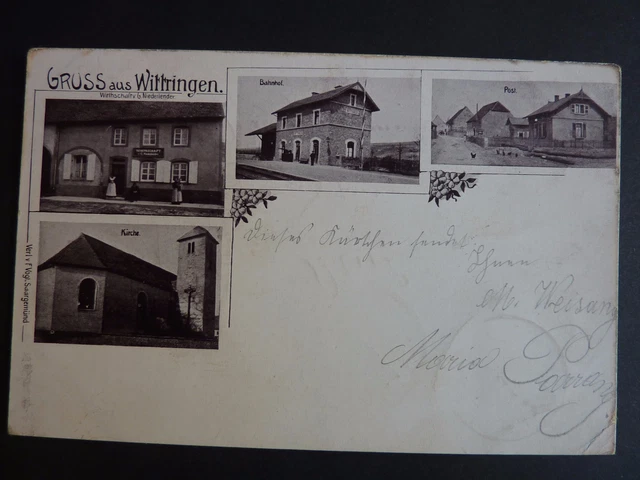 GRUSS aus Wittringen.
Wirthschaft v. G. Niederlender
Bahnhof.
Post.
Kirche
Verl. v. F. Vogt, Saargemünd
Dieses Kärtchen sendet
Ihnen
M. Weisang
Maria